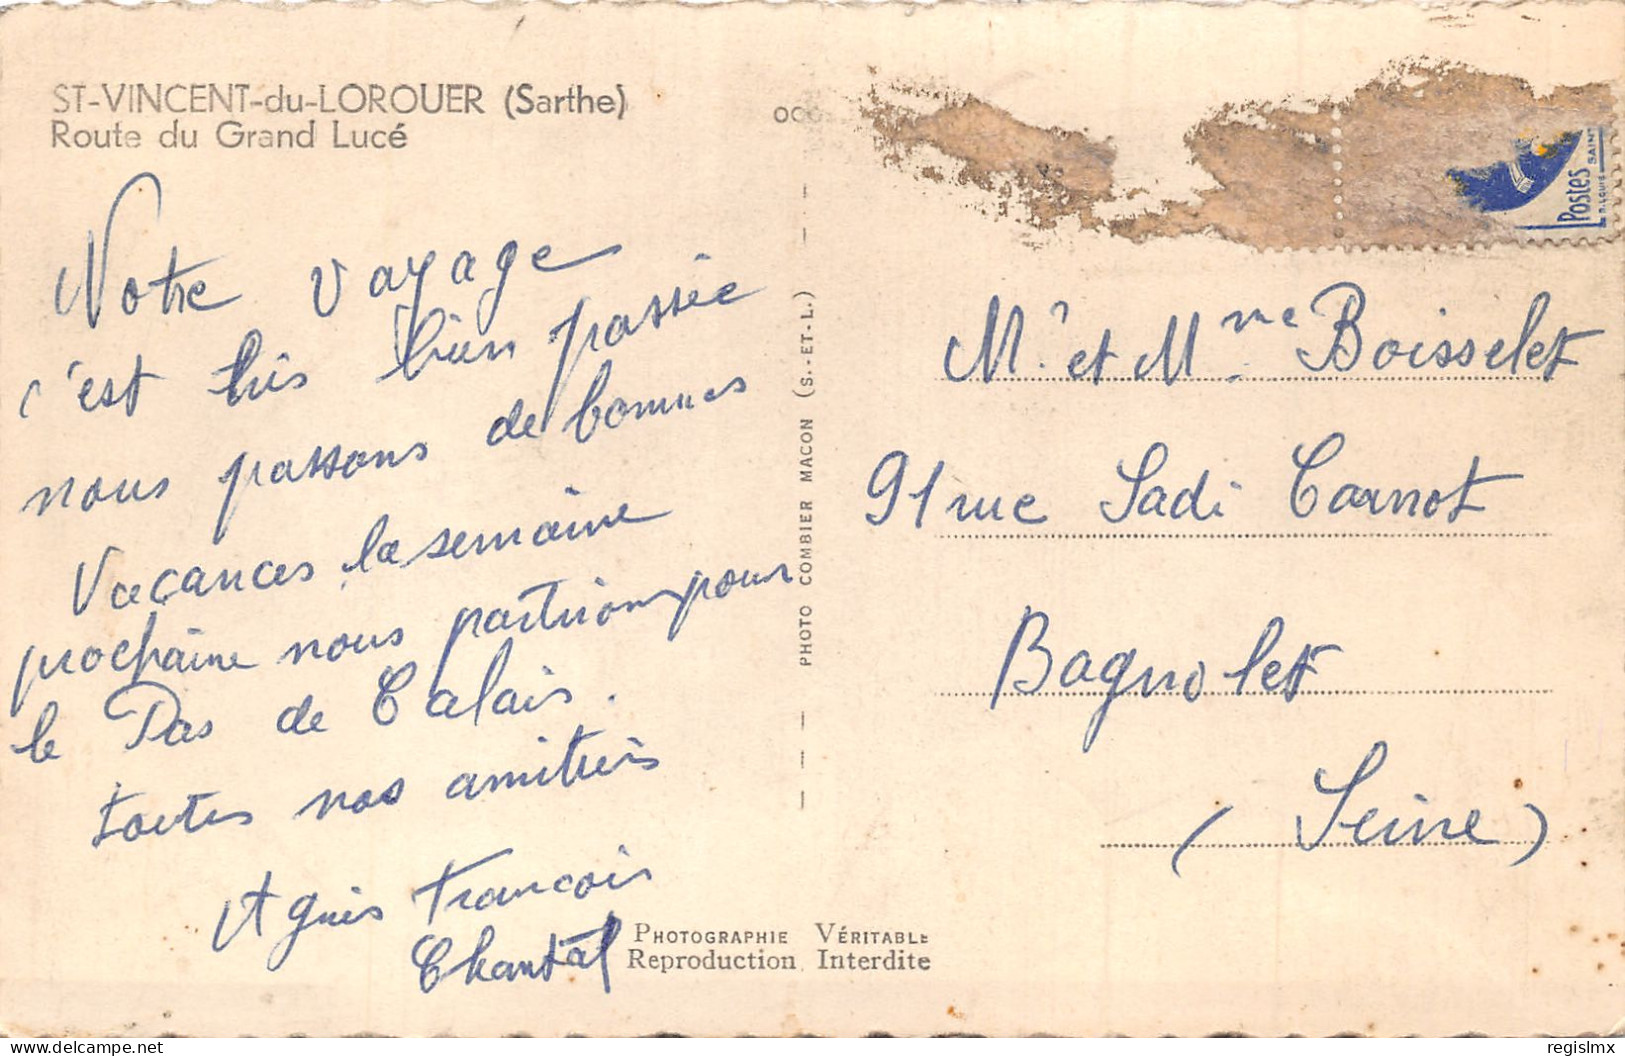 ST-VINCENT-du-LOROUER (Sarthe)
Route du Grand Lucé
Notre voyage
c'est très bien passée
nous passons de bonnes
Vacances la semaine
prochaine nous partirons pour
le Pas de Calais.
toutes nos amitiés
Agnès Francois
Chantal
PHOTO COMBIER MACON (S.-ET-L.)
PHOTOGRAPHIE VÉRITABLE
Reproduction Interdite
Postes
SAINT
Mr et Mme Boisselet
91 rue Sadi Carnot
Bagnolet
(Seine)
delcampe.net
regislmx